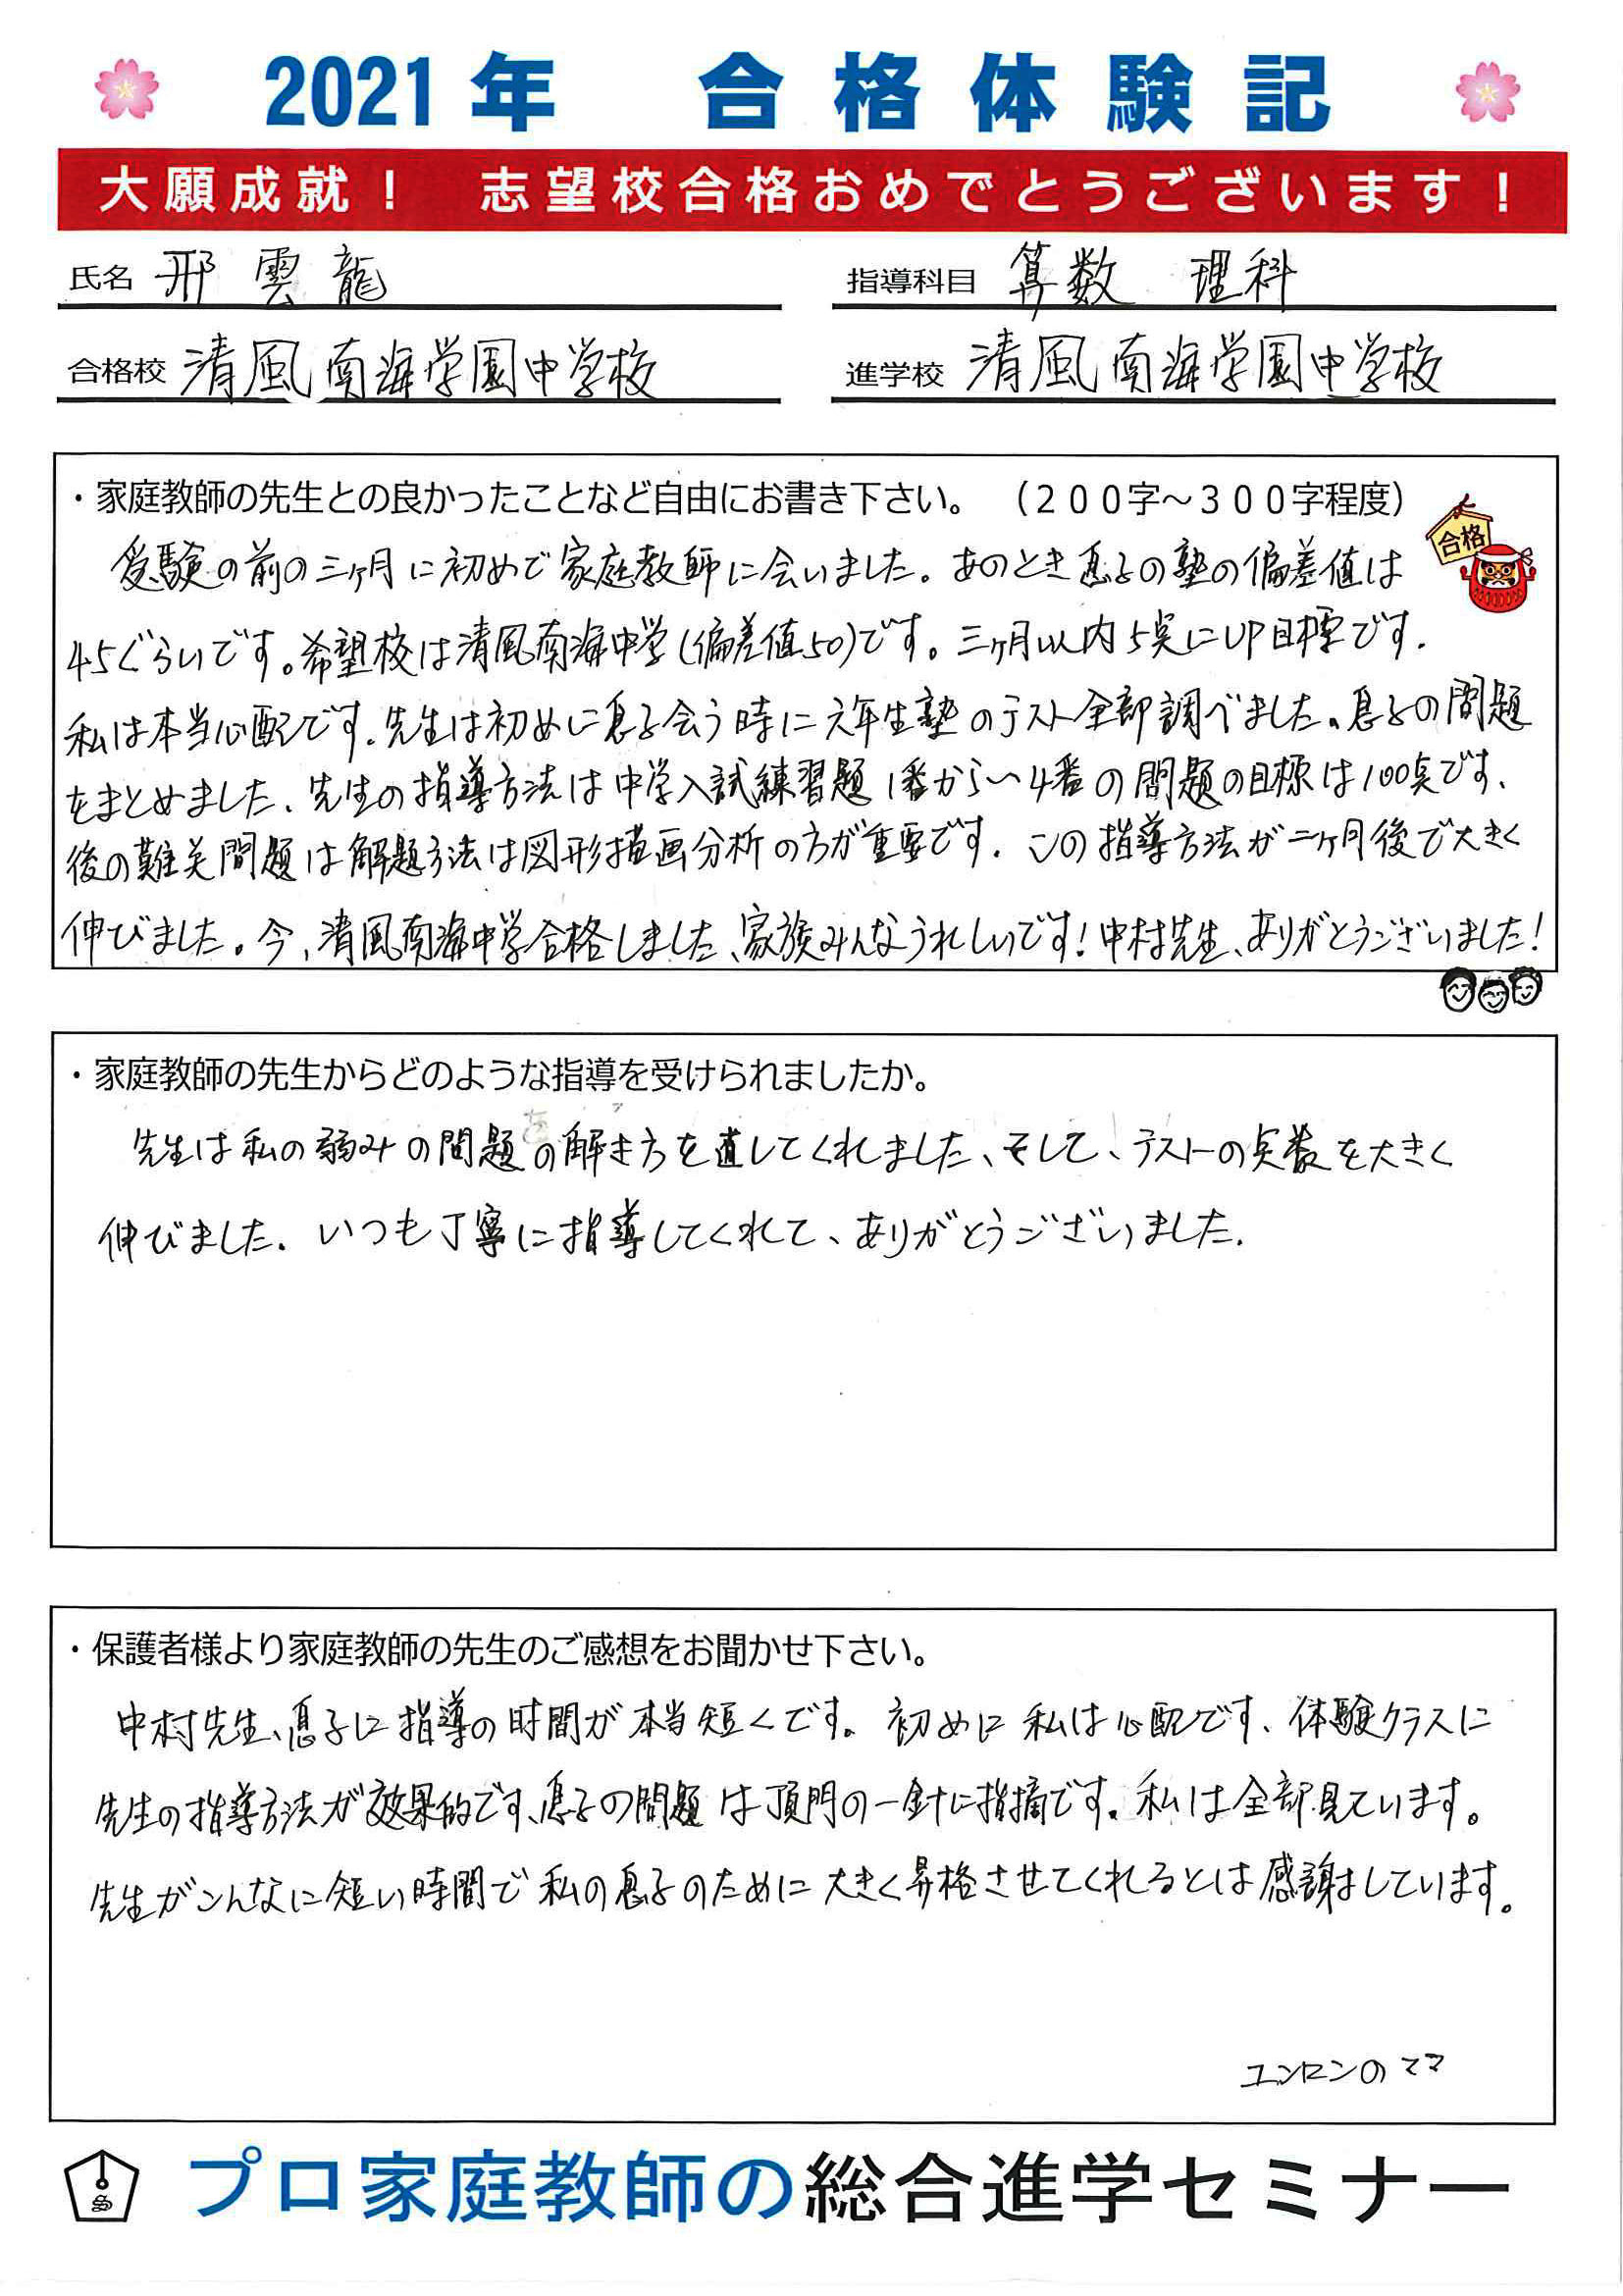 2021年 合格体験記
大願成就！ 志望校合格おめでとうございます！
氏名 邢雲龍
指導科目 算数 理科
合格校 清風南海学園中学校
進学校 清風南海学園中学校
・家庭教師の先生との良かったことなど自由にお書き下さい。 （２００字～３００字程度）
合格
受験の前の三ヶ月に初めで家庭教師に会いました。あのとき息子の塾の偏差値は
45ぐらいです。希望校は清風南海中学(偏差値50)です。三ヶ月以内5点にUP目標です.
私は本当心配です.先生は初めに息子会う時に六年生塾のテスト全部調べました。息子の問題
をまとめました、先生の指導方法は中学入試練習題1番から〜4番の問題の目標は100点です、
後の難关問題は解題方法は図形描画分析の方が重要です. この指導方法が二ヶ月後で大きく
伸びました。今、清風南海中学合格しました、家族みんなうれしいです!中村先生、ありがとうございました!
・家庭教師の先生からどのような指導を受けられましたか。
先生は私の弱みの問題の解き方を直してくれました、そして、テストの点数を大きく
伸びました. いつも丁寧に指導してくれて、ありがとうございました.
・保護者様より家庭教師の先生のご感想をお聞かせ下さい。
中村先生、息子に指導の時間が本当短くです。初めに私は心配です、体験クラスに
先生の指導方法が効果的です、息子の問題は頂門の一針に指摘です。私は全部見ています。
先生がこんなに短い時間で私の息子のために大きく昇格させてくれるとは感謝しています。
ユンロンのママ
プロ家庭教師の総合進学セミナー